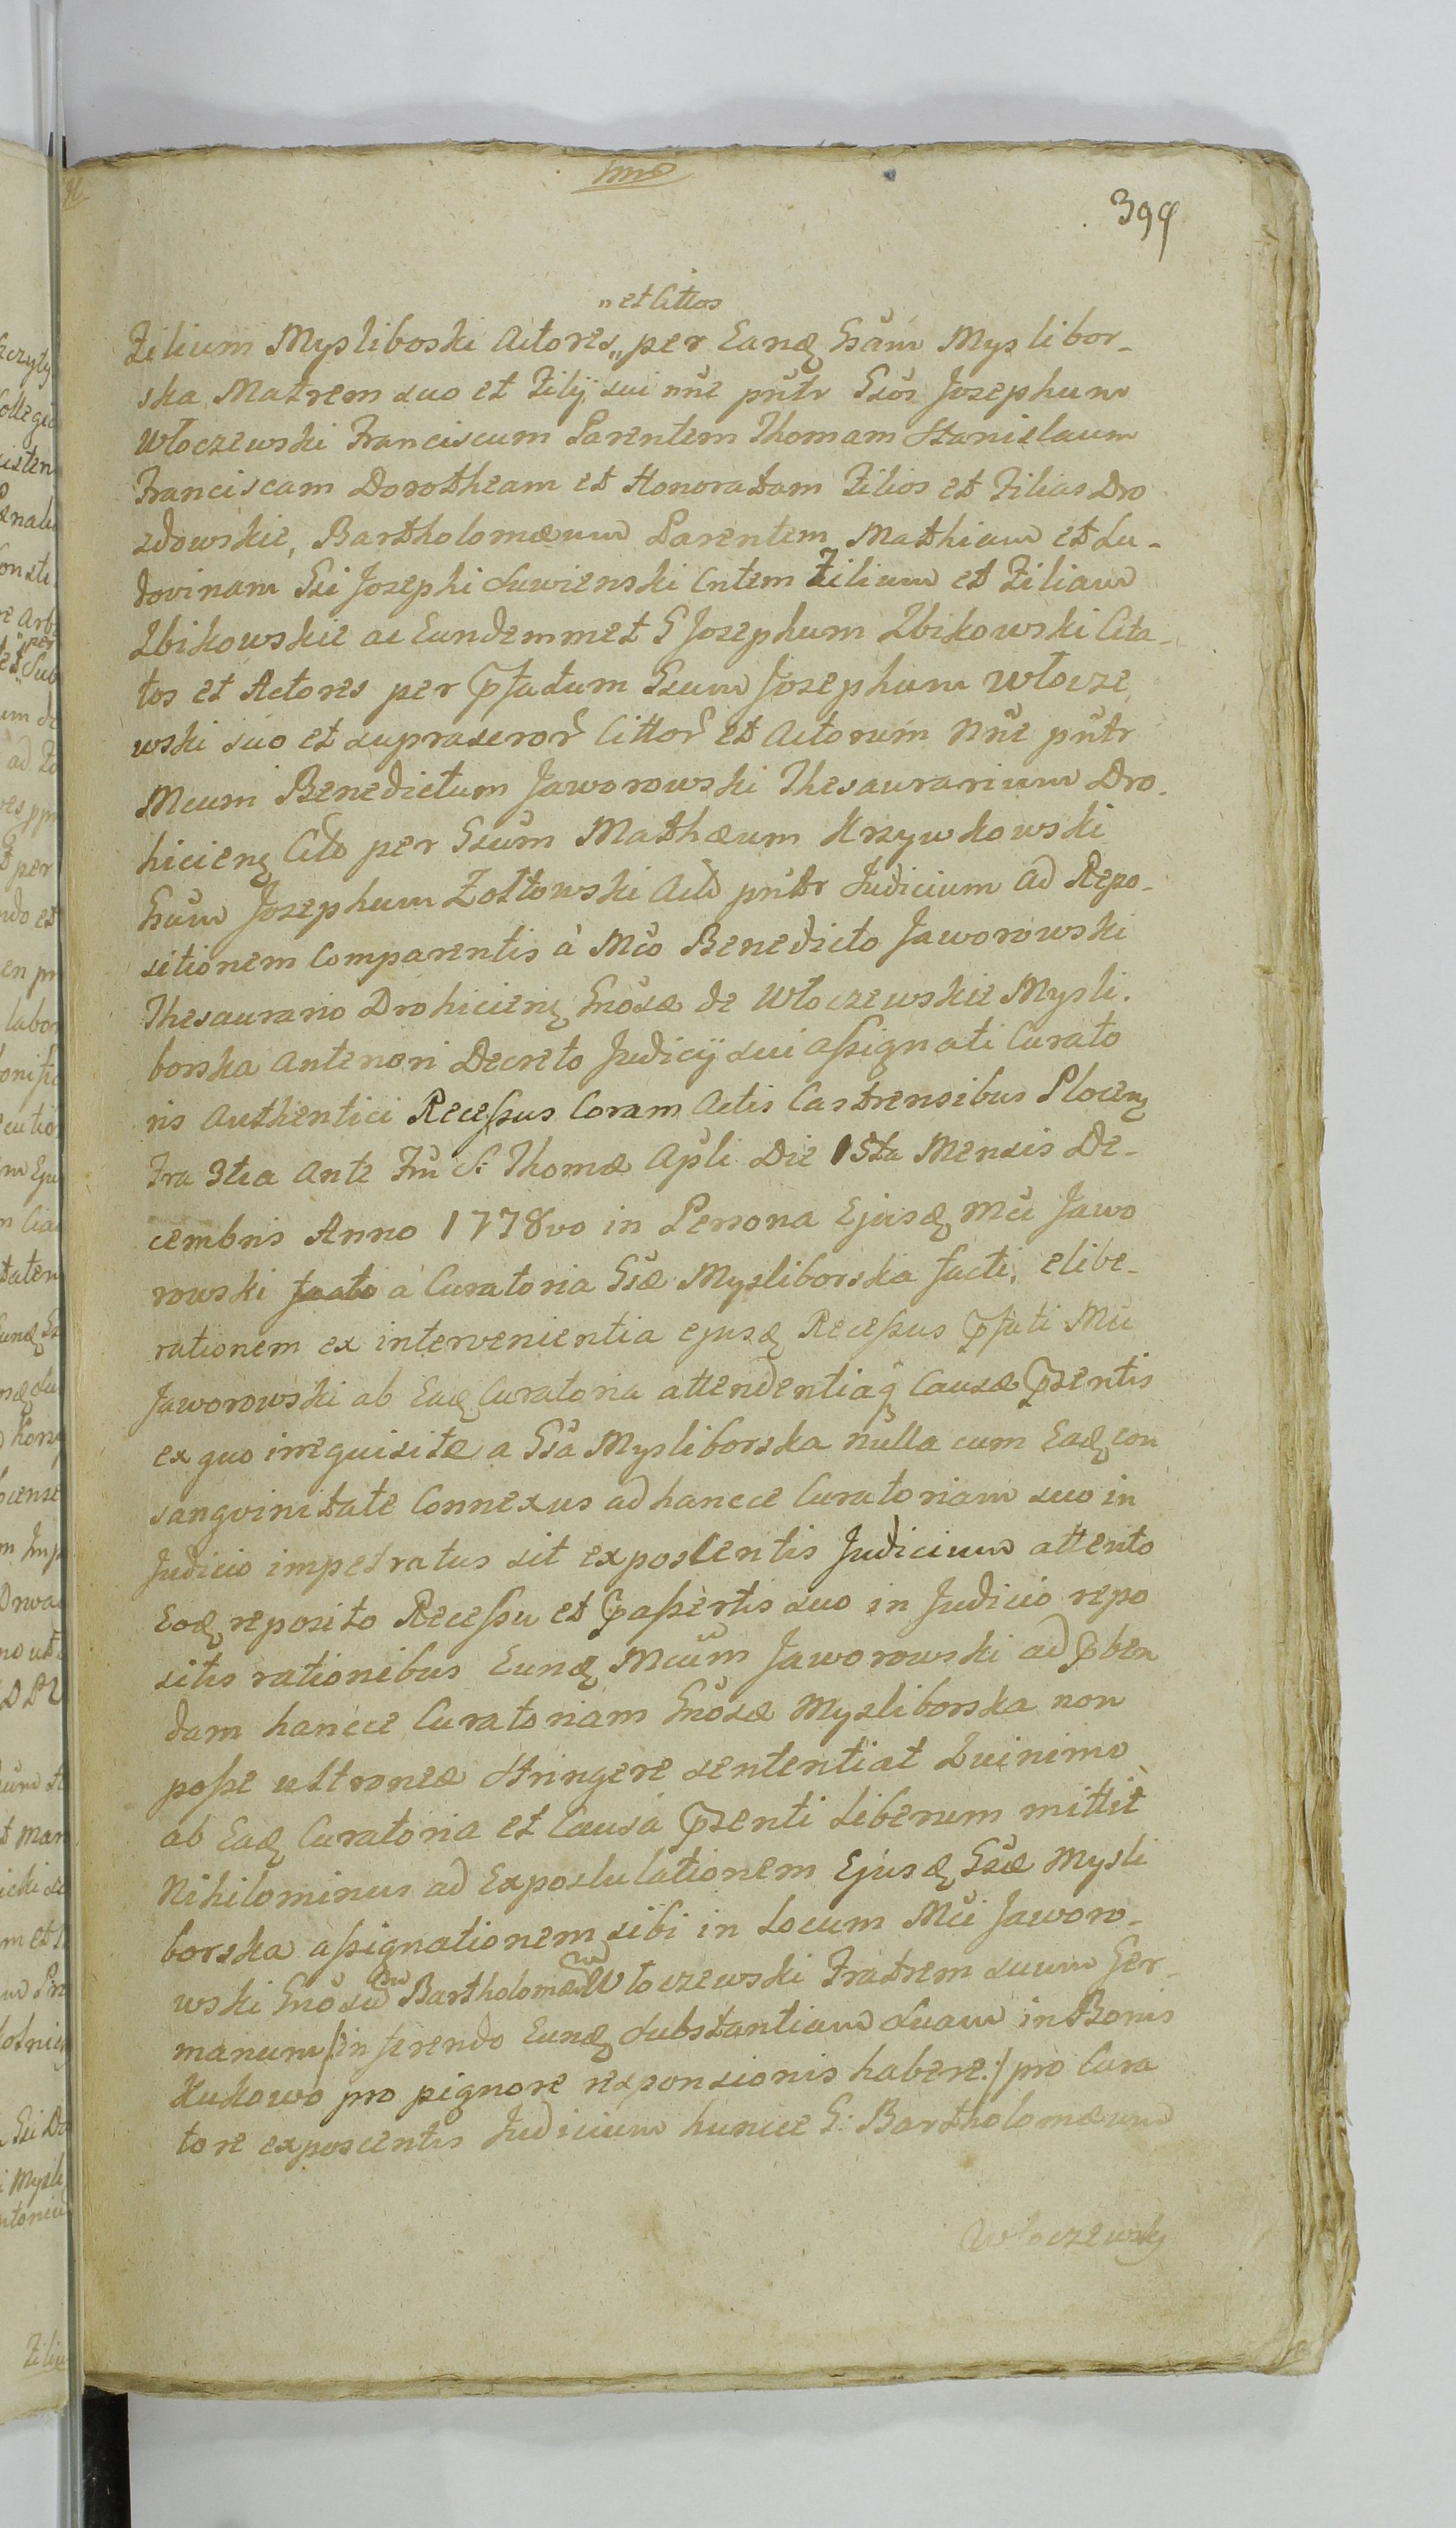 399
„et Cittos
Filium Mysliboski Actores„ per Eandȩ Gsam Myslibor-
ska Matrem suo et Filij sui nȗe pntr Gsos Josephum
Włoczewski Franciscum Parentem Thomam Stanislaum
Franciscam Dorotheam et Honoratam Filios et Filias Dro
zdowskie, Bartholomæum Parentem Mathiam et Lu-
dovinam Gsi Josephi Luwienski Cntem Filium et Filiam
Zbikowskie ac Eundemmet G Josephum Zbikowski Cita-
tos et Actores per pfatum Gsum Josephum Włocze
wski suo et suprascror Cittor et Actorum Nne pntr
Mcum Benedictum Jaworowski Thesaurarium Dro-
hicien Citt per Gsum Mathæum Krzywkowski
Gsum Josephum Zołtowski Act pntr Judicium ad Repo-
sitionem Comparentis à Mco Benedicto Jaworowski
Thesaurario Drohicien Gnosæ de Włoczewskie Mysli-
borska Antenori Decreto Judicij sui assignati Curato
ris Authentici Recessus Coram Actis Castrensibus Plocen
Fra 3tia Ante Fm S: Thomæ Apli Die 15ta Mensis De-
cembris Anno 1778vo in Persona Ejusd Mci Jawo
rowski facto a Curatoria Gsæ Mysliborska facti, elibe-
rationem ex intervenientia ejusd Recessus pfati Mci
Jaworowski ab Ead Curatoria attendentiaq Causæ psentis
ex quo irrequisitæ a Gsa Mysliborska nulla cum Ead con
sangvinitate Connexus ad hancce Curatoriam suo in
Judicio impetratus sit exposcentis Judicium attento
Eod reposito Recessu et passertis suo in Judicio repo
sitis rationibus Eund Mcum Jaworowski ad pben
dam hancce Curatoriam Gnosæ Mysliborska non
posse ultroneæ Stringere sententiat Quinimo
ab Ead Curatoria et Causa psenti Liberum mittit
Nihilominus ad Expostulationem Ejusd Gsæ Mysli
borska assignationem sibi in Locum Mci Jaworo-
wski Gnosum Bartholomæum Włoczewski Fratrem suum Ger-
manum /:inferendo Eund Substantiam Suam in Bonis
Kukowo pro pignore responsionis habere:/ pro Cura
tore exposcentis Judicium huncce G: Bartholomæum
Włoczewsky